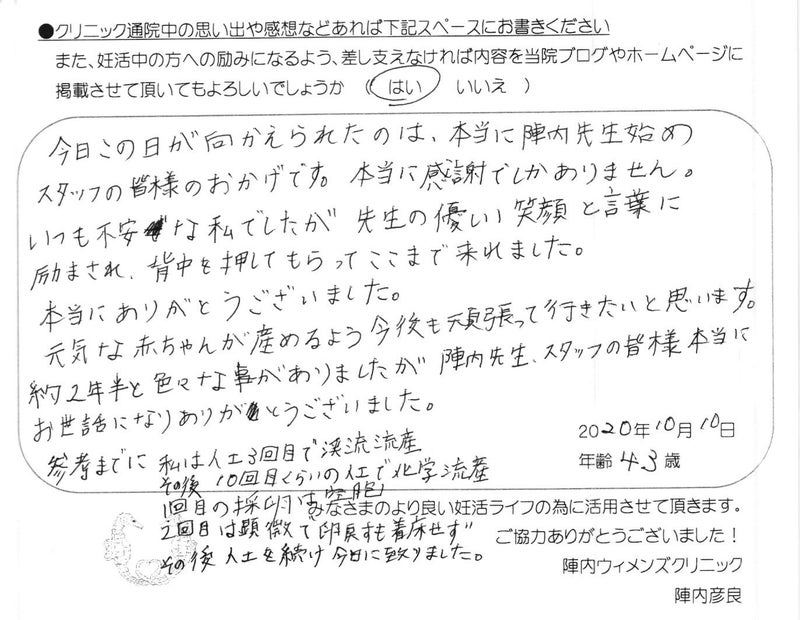 ●クリニック通院中の思い出や感想などあれば下記スペースにお書きください
また、妊活中の方への励みになるよう、差し支えなければ内容を当院ブログやホームページに
掲載させて頂いてもよろしいでしょうか （ はい ・ いいえ ）
今日この日が向かえられたのは、本当に陣内先生始め
スタッフの皆様のおかげです。本当に感謝でしかありません。
いつも不安な私でしたが 先生の優しい笑顔と言葉に
励まされ、背中を押してもらってここまで来れました。
本当にありがとうございました。
元気な赤ちゃんが産めるよう今後も頑張って行きたいと思います。
約2年半と色々な事がありましたが 陣内先生、スタッフの皆様本当に
お世話になりありがとうございました。
2020年10月10日
年齢 43歳
参考までに 私は人工3回目で渓流流産
その後 10回目くらいの人工で化学流産
1回目の採卵は空胞
2回目は顕微で卵戻すも着床せず
その後人工を続け今日に至りました。
みなさまのより良い妊活ライフの為に活用させて頂きます。
ご協力ありがとうございました！
陣内ウィメンズクリニック
陣内彦良